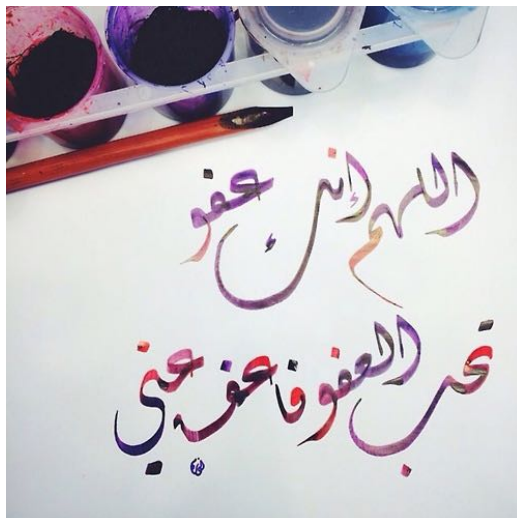 اللهم إنك عفو
تحب العفو فاعف عني